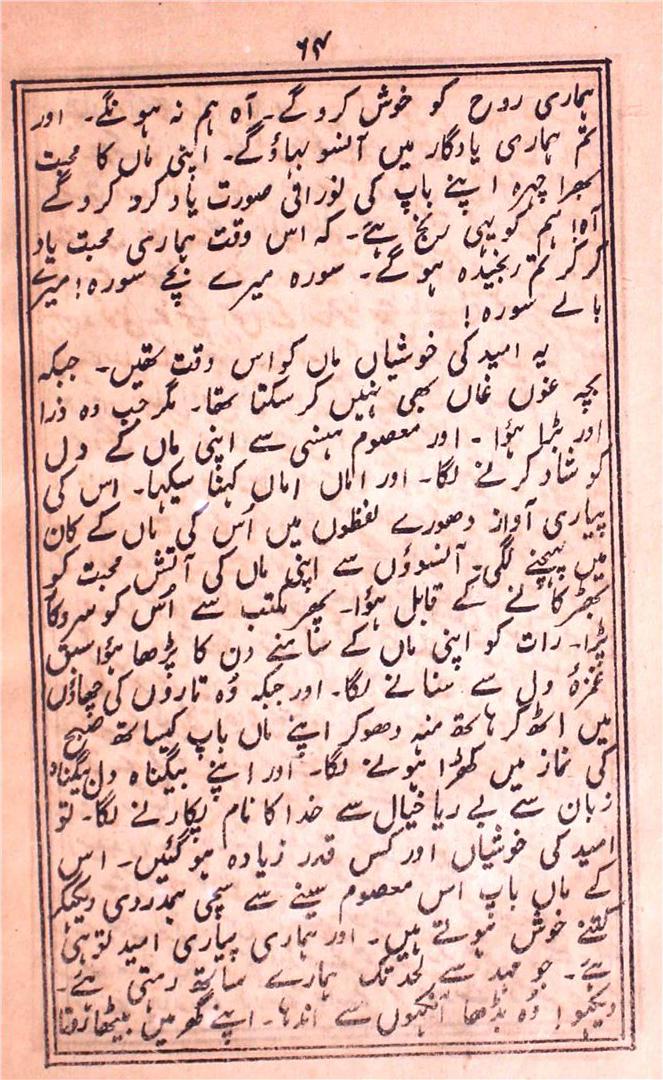 ۶۴
ہماری روح کو خوش کرو گے۔ آہ ہم نہ ہونگے۔ اور
تم ہماری یادگار میں آنسو بہاؤ گے۔ اپنی ماں کا محبت
بھرا چہرہ اپنے باپ کی نورانی صورت یاد کرو کرو گے
آہ! ہم کو یہی رنج ہے۔ کہ اس وقت ہماری محبت یاد
کر کر تم رنجیدہ ہو گے۔ سو رہ میرے بچے سو رہ! میرے
بالے سو رہ!
یہ امید کی خوشیاں ماں کو اس وقت تھیں۔ جبکہ
بچہ غوں غاں بھی نہیں کر سکتا تھا۔ مگر جب وہ ذرا
اور بڑا ہؤا۔ اور معصوم ہنسی سے اپنی ماں کے دل
کو شاد کرنے لگا۔ اور اماں اماں کہنا سیکہا۔ اس کی
پیاری آواز دھورے لفظوں میں اُس کی ماں کے کان
میں پہنچنے لگی۔ آنسوؤں سے اپنی ماں کی آتش محبت کو
بھڑکانے کے قابل ہؤا۔ پھر مکتب سے اُس کو سروکا
پڑا۔ رات کو اپنی ماں کے سامنے دن کا پڑھا ہؤا سبق
غمزۂ دل سے سنانے لگا۔ اور جبکہ وُہ تاروں کی چھاؤں
میں اٹھ کر ہاتھ منہ دھو کر اپنے ماں باپ کیساتھ صبح
کی نماز میں کھڑا ہونے لگا۔ اور اپنے بیگناہ دل بیگناہ
زبان سے بے ریا خیال سے خدا کا نام پکارنے لگا۔ تو
امید کی خوشیاں اور کس قدر زیادہ ہو گئیں۔ اس
کے ماں باپ اس معصوم سینے سے سچی ہمدردی دیکھکر
کتنے خوش ہوتے ہیں۔ اور ہماری پیاری امید تو ہی
ہے۔ جو مہد سے لحد تک ہمارے ساتھ رہتی ہے۔
دیکھو! وُہ بڈھا آنکھوں سے اندھا۔ اپنے گھر میں بیٹھا روتا